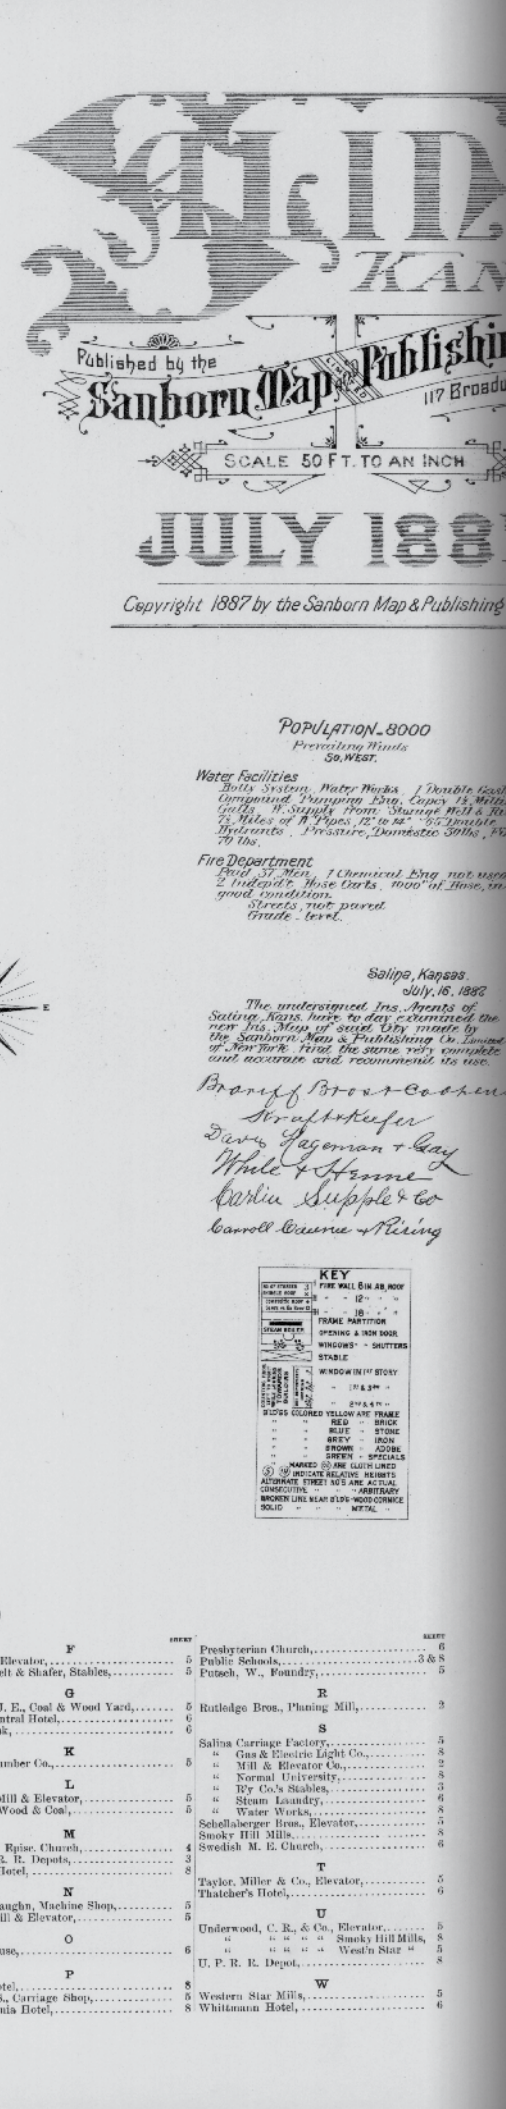 SALIN
KAN
Published by the
Sanborn Map & Publishin
LIMITED
117 Broadw
SCALE 50 FT. TO AN INCH
JULY 188
Copyright 1887 by the Sanborn Map & Publishing
POPULATION - 8000
Prevailing Winds
SO. WEST.
Water Facilities
Holly System, Water Works, 1 Double
Compound Pumping Eng. Cap'cy 1½ Milli
Galls. W. Supply from Storage Well &
7½ Miles of W. Pipes, 12" to 4" 65 Double
Hydrants, Pressure, Domestic 30 lbs,
70 lbs.
Fire Department
Paid, 37 Men, 1 Chemical Eng. not use
2 Indep'd't Hose Carts, 1000' of Hose, in
good condition.
Streets, not paved
Grade - level.
E
Salina, Kansas.
July, 16, 1887
The undersigned Ins. Agents of
Salina, Kans. have to day examined the
new Ins. Map of said City made by
the Sanborn Map & Publishing Co. Limited
of New York, find the same very complete
and accurate and recommend its use.
Kraft & Keefer
Davis Hageman & Gay
White & Henne
Carlin Supple & Co
Carroll & Rising
KEY
FIRE WALL 6 IN. AB. ROOF
" " 12 " " "
" " 18 " " "
FRAME PARTITION
STEAM BOILER
OPENING & IRON DOOR
WINDOWS " " SHUTTERS
STABLE
WINDOW IN 1ST STORY
" 1ST & 3RD "
" 2ND & 4TH "
B'LD'GS COLORED YELLOW ARE FRAME
" " RED " BRICK
" " BLUE " STONE
" " GREY " IRON
" " BROWN " ADOBE
" " GREEN " SPECIALS
" MARKED ARE CLOTH LINED
INDICATE RELATIVE HEIGHTS
ALTERNATE STREET NO'S ARE ACTUAL
CONSECUTIVE " " " ARBITRARY
BROKEN LINE NEAR B'LD'G - WOOD CORNICE
SOLID " " " METAL "
SHEET
F
Elevator, 5
elt & Shafer, Stables, 5
G
J. E., Coal & Wood Yard, 5
ntral Hotel, 6
k, 6
K
umber Co., 5
L
Mill & Elevator, 5
Wood & Coal, 5
M
Episc. Church, 4
R. R. Depots, 3
Hotel, 8
N
aughn, Machine Shop, 5
ill & Elevator, 5
O
use, 6
P
otel, 8
S., Carriage Shop, 5
nia Hotel, 8
SHEET
Presbyterian Church, 6
Public Schools, 3 & 8
Putsch, W., Foundry, 5
R
Rutledge Bros., Planing Mill, 2
S
Salina Carriage Factory, 5
" Gas & Electric Light Co., 8
" Mill & Elevator Co., 2
" Normal University, 8
" R'y Co.'s Stables, 3
" Steam Laundry, 6
" Water Works, 8
Schellaberger Bros., Elevator, 5
Smoky Hill Mills, 8
Swedish M. E. Church, 6
T
Taylor, Miller & Co., Elevator, 5
Thatcher's Hotel, 6
U
Underwood, C. R., & Co., Elevator, 5
" " " " " Smoky Hill Mills, 8
" " " " " West'n Star " 5
U. P. R. R. Depot, 8
W
Western Star Mills, 5
Whittmann Hotel, 6